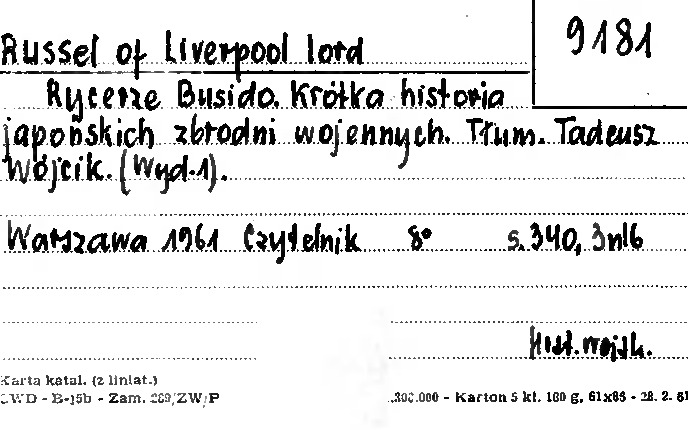 Russel of Liverpool lord
9181
Rycerze Busido. Krótka historia
japońskich zbrodni wojennych. Tłum. Tadeusz
Wójcik. (Wyd.1).
Warszawa 1961 Czytelnik 8° s. 340, 3nlb
Hist. wojsk.
Karta katal. (z liniat.)
CWD - B-15b - Zam. 269/ZW/P
.300.000 - Karton 5 kl. 180 g, 61x86 - 28. 2. 61